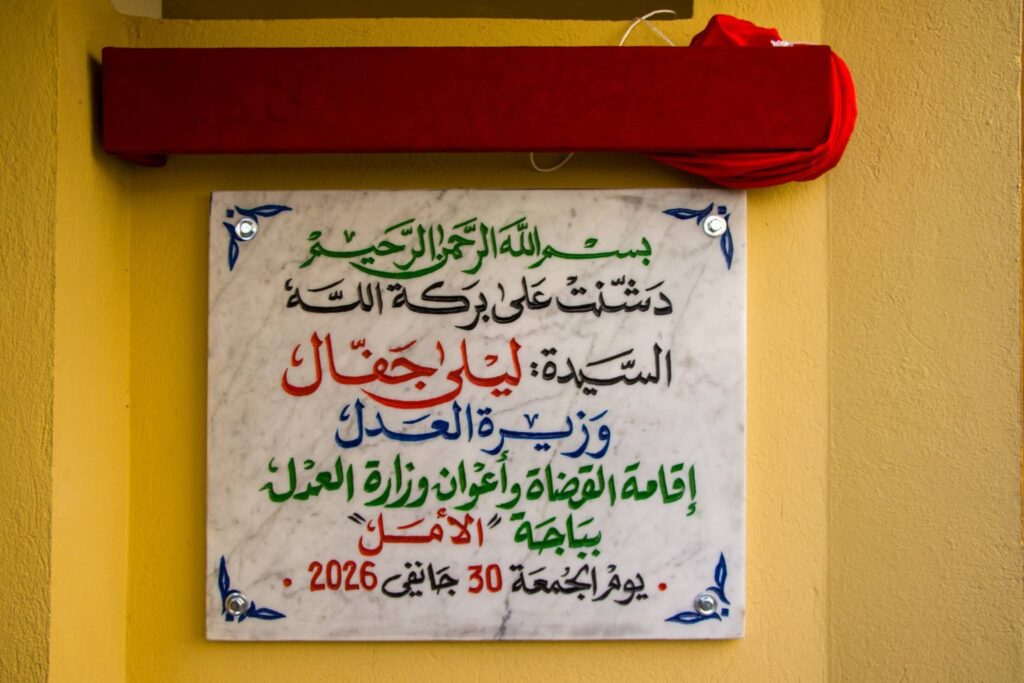 بسم الله الرّحمن الرّحيم
دَشّنت عَلى بركة اللّه
السّيدة: ليْلى جَفّال
وَزيرة العَدل
إقامة القضاة وأعْوان وزارة العَدل
ببَاجَة "الأمَل"
• يومْ الجُمعَة 30 جَانفي 2026 •